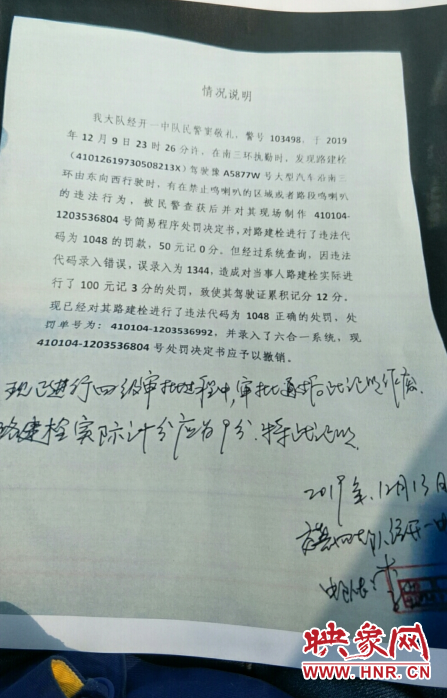 情况说明
我大队经开一中队民警窦敬礼，警号 103498，于 2019
年 12 月 9 日 23 时 26 分许，在南三环执勤时，发现路建栓
（41012619730508213X）驾驶豫 A5877W 号大型汽车沿南三
环由东向西行驶时，有在禁止鸣喇叭的区域或者路段鸣喇叭
的违法行为，被民警查获后并对其现场制作 410104-
1203536804 号简易程序处罚决定书，对路建栓进行了违法代
码为 1048 的罚款，50 元记 0 分。但经过系统查询，因违法
代码录入错误，误录入为 1344，造成对当事人路建栓实际进
行了 100 元记 3 分的处罚，致使其驾驶证累积记分 12 分，
现已经对其路建栓进行了违法代码为 1048 正确的处罚，处
罚单号为：410104-1203536992，并录入了六合一系统，现
410104-1203536804 号处罚决定书应予以撤销。
现已进行四级审批过程中，审批通过后此记以作废，
路建栓实际计分应为9分。特此说明
2019年12月13日
队经开一中
映象网
WWW.HNR.CN